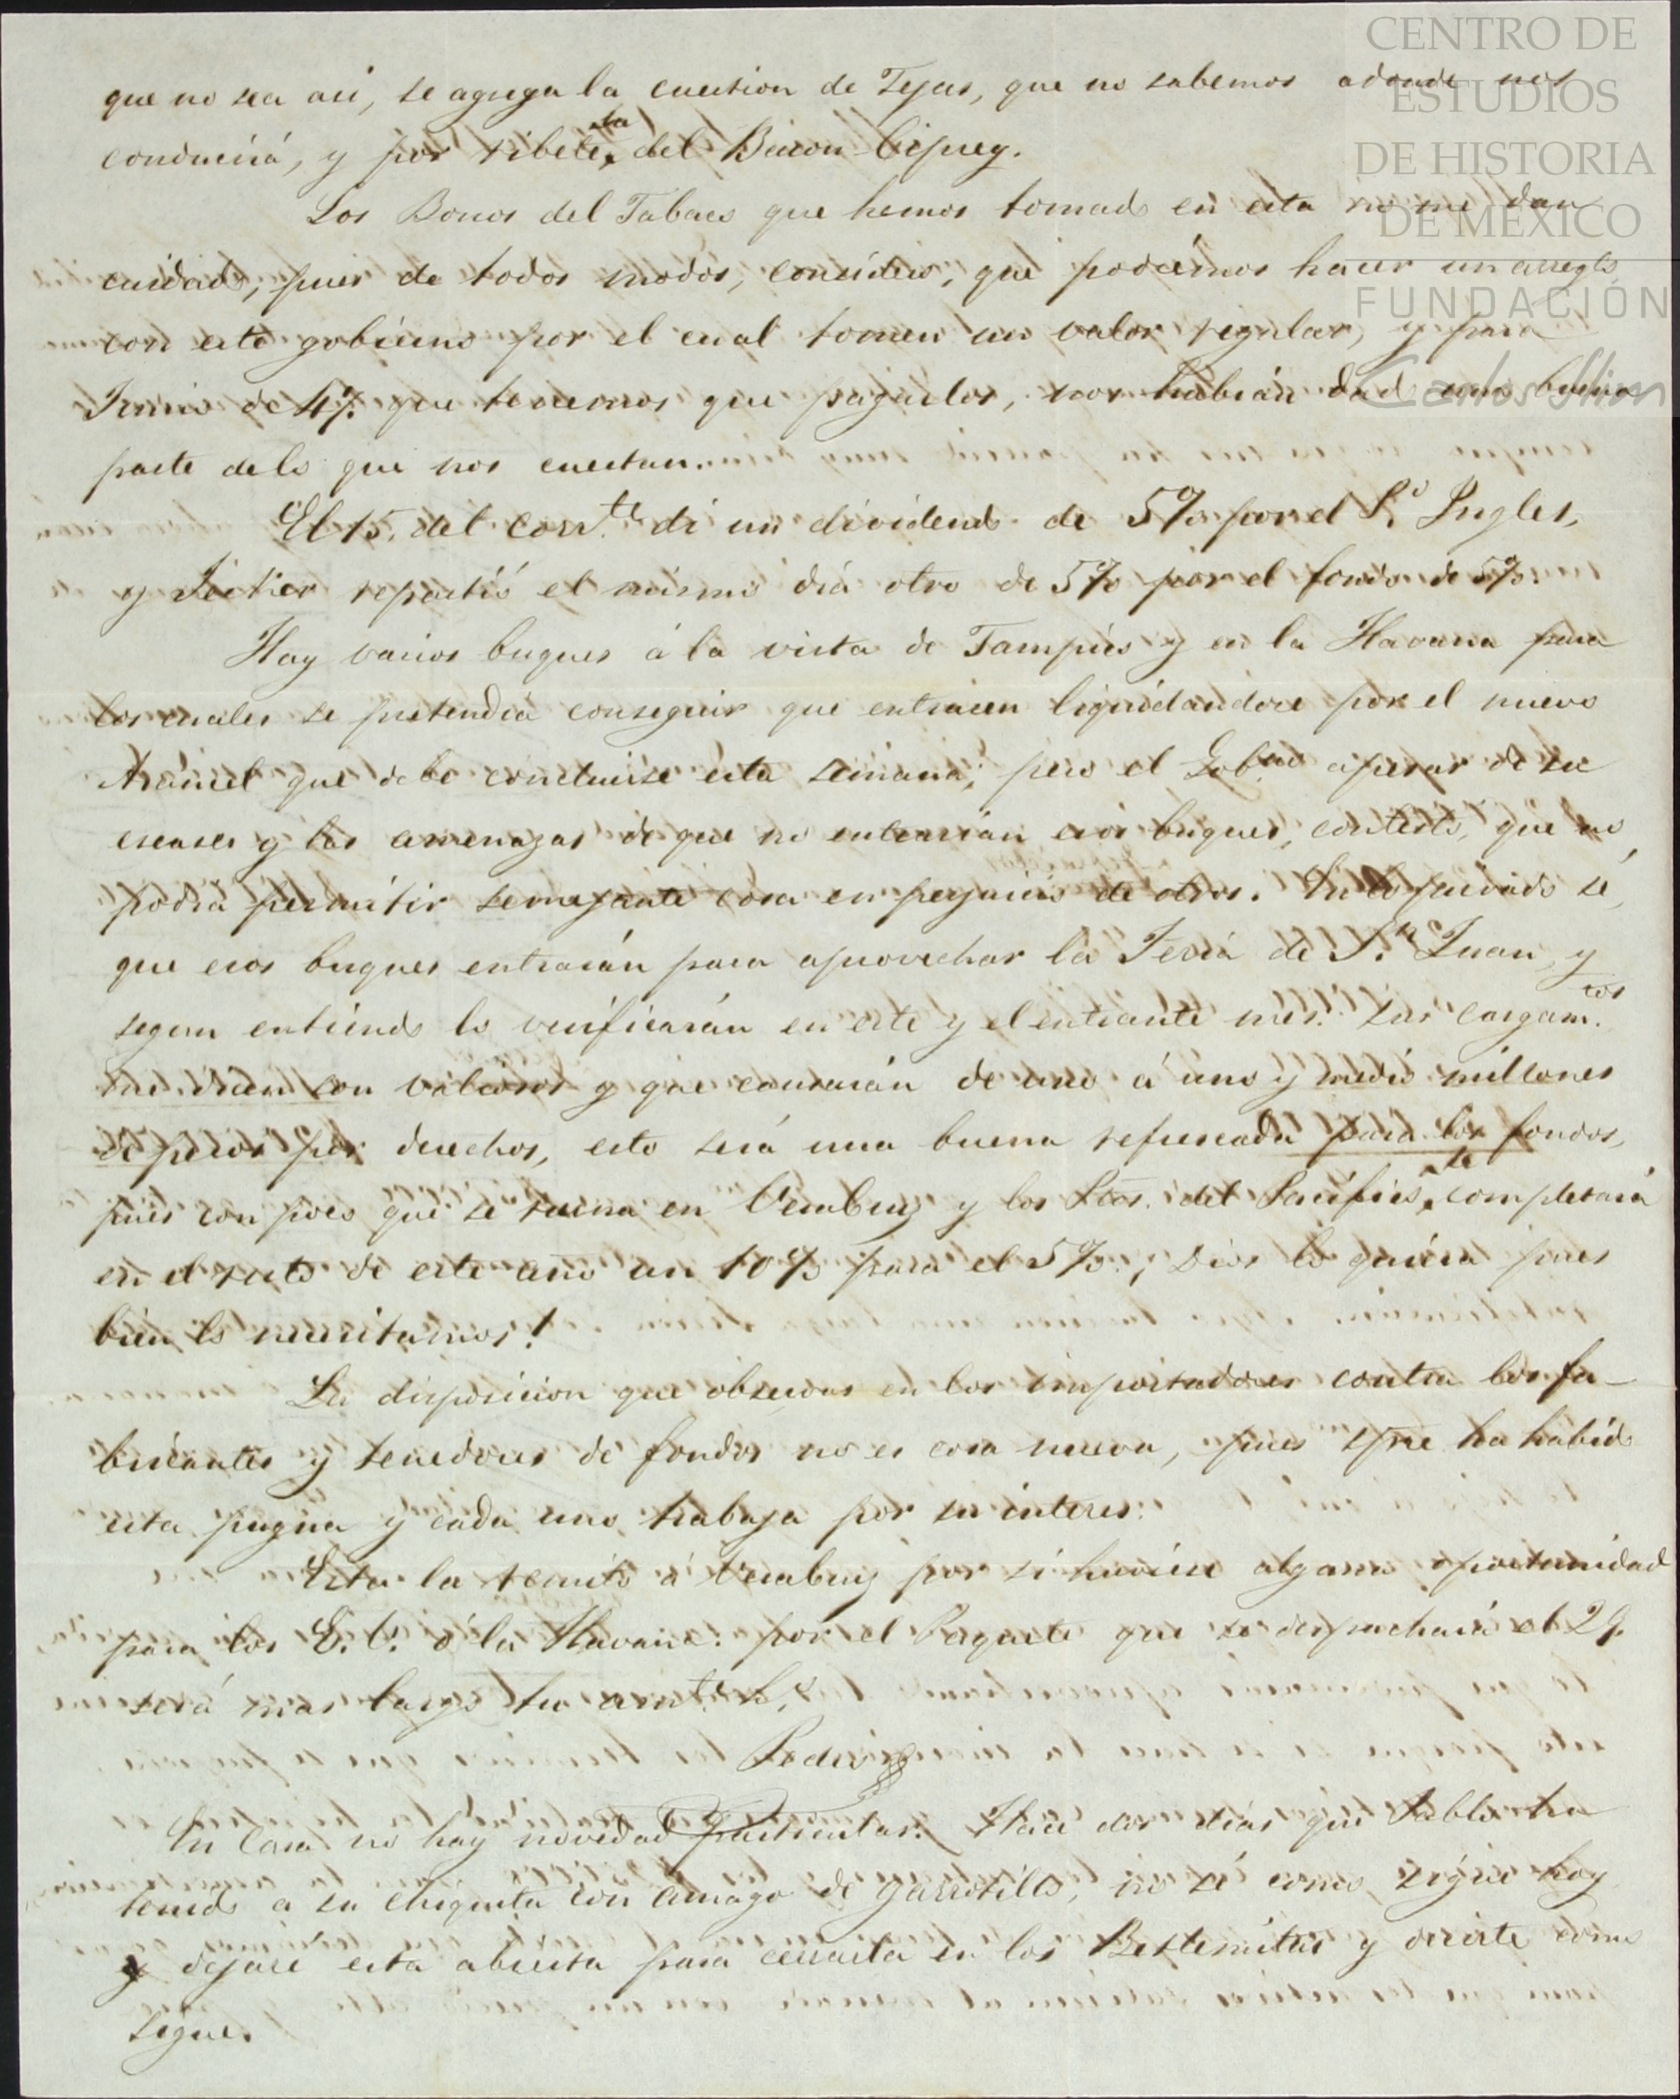 CENTRO DE
ESTUDIOS
DE HISTORIA
DE MÉXICO
FUNDACIÓN
Carlos Slim
que no sea asi, se agrega la cuestion de Tejas, que no sabemos adonde nos
conducirá, y por ribete, la del Baron Ciprey.
Los Bonos del Tabaco que hemos tomado en esta no me dan
cuidado, pues de todos modos, considero, que podrémos hacer un arreglo
con este gobierno por el cual tomen un valor regular, y para
Junio de 47. que tenemos que pagarlos, nos habrán dado una buena
parte de lo que nos cuestan.
El 15. del corr.te di un dividendo de 5% por el F.o Ingles,
y repartió el mismo dia otro de 5% por el fondo de 5%.
Hay varios buques á la vista de Tampico y en la Havana para
los cuales se pretendia conseguir que entrasen liquidandose por el nuevo
Arancel que debe concluirse esta semana; pero el Gob.no apesar de su
escases y las amenazas de que no entrarian esos buques, contestó, que no
podia permitir semejante cosa en perjuicio de otros. En lo privado sé,
que esos buques entrarán para aprovechar la Feria de S.n Juan, y
segun entiendo lo verificarán en este y el entrante mes. Sus cargam.tos
me dicen son valiosos y que causarán de uno á uno y medio millones
de pesos por derechos, esto será una buena refrescada para los fondos,
pues con poco que se reuna en Veracruz y los Ptos. del Pacifico, se completará
en el resto de este año un 10% para el 5%.; Dios lo quiera pues
bien lo necesitamos!
La disposicion que observas en los importadores contra los fa-
bricantes y tenedores de fondos no es cosa nueva, pues spre. ha habido
esta pugna y cada uno trabaja por su interes.
Esta la remito á Veracruz por si hubiese alguna oportunidad
para los E. U. ó la Havana: por el Paquete que se despachará el 29.
será mas largo tu am.te h.
Pedro
En Casa no hay novedad particular. Hace dos dias que Pablo ha
tenido a su chiquita con amago de garrotillo, no sé como sigue hoy
y dejaré esta abierta para cerrarla en los Betlemitas y decirte como
sigue.